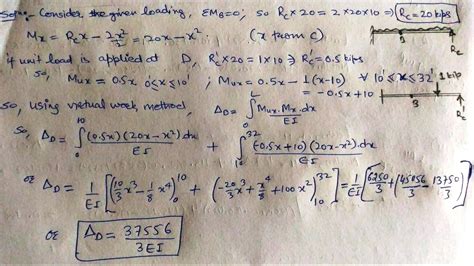 Soln:- Consider the given loading, ΣMB=0; so Rc×20 = 2×20×10 ⇒ Rc=20 kips
Mx = Rcx - 2x²/2 = 20x - x² (x from C)
B
Rc
if unit load is applied at D, Rc'×20 = 1×10 ⇒ Rc' = 0.5 kips
so, Mux = 0.5x 0≤x≤10' ; Mux = 0.5x - 1(x-10) ∀ 10≤x≤32'
= -0.5x+10
1 kip
B
Rc'
So, using virtual work method, ΔD = ∫0^L Mux.Mx.dx/EI
So, ΔD = ∫0^10 (0.5x)(20x-x²).dx/EI + ∫10^32 (-0.5x+10)(20x-x²).dx/EI
or ΔD = 1/EI [(10/3 x³ - 1/8 x⁴)0^10 + (-20/3 x³ + x⁴/8 + 100x²)10^32] = 1/EI [6250/3 + 145056/3 - 13750/3]
or ΔD = 37556/3EI